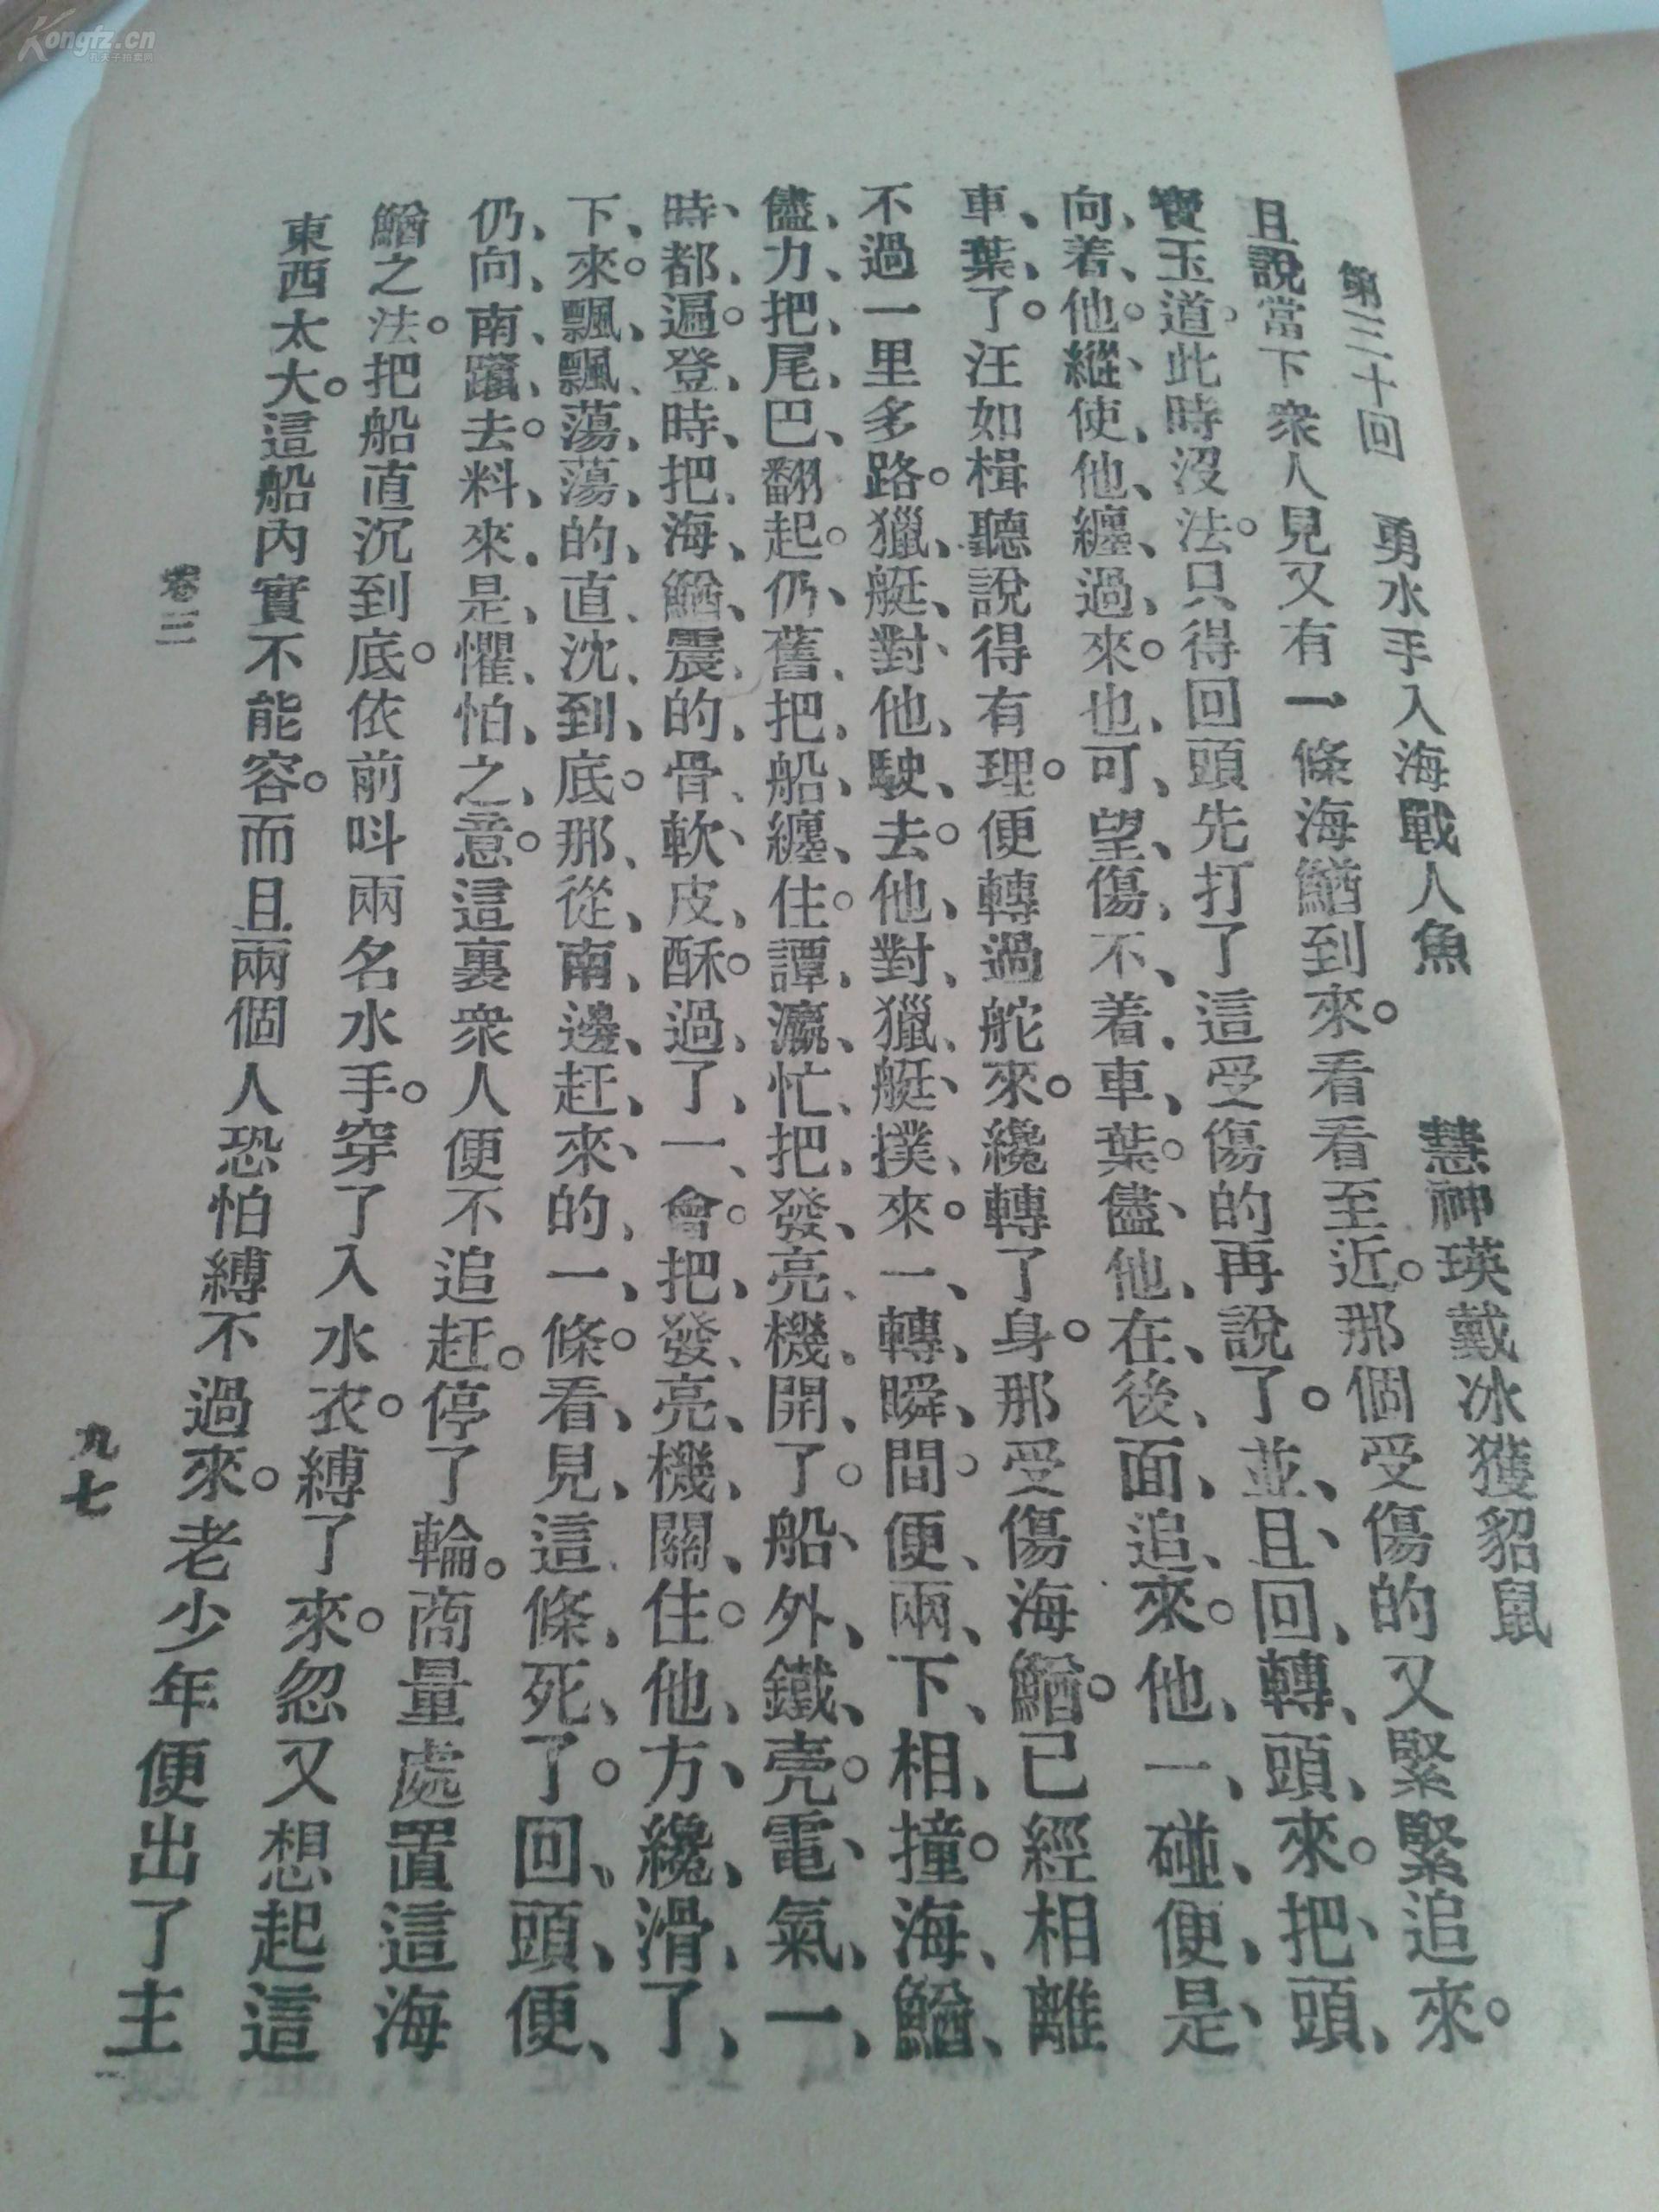 第三十回　勇水手入海戰人魚　慧神瑛戴冰獲貂鼠
且說當下衆人見又有一條海鰌到來。看看至近。那個受傷的又緊緊追來。
寶玉道。此時沒法。只得回頭先打了這受傷的再說了。並、且、回、轉、頭、來。把、頭、
向、着、他。縱、使、他、纏、過、來。也、可、望、傷、不、着、車、葉。儘、他、在、後、面、追、來。他、一、碰、便、是、
車、葉、了。汪如楫聽說得有理。便轉過舵來。纔轉了身。那受傷海鰌。已經相離
不過一里多路。獵、艇、對、他、駛、去。他、對、獵、艇、撲、來。一、轉、瞬、間。便、兩、下、相、撞。海、鰌、
儘、力、把、尾、巴、翻、起。仍、舊、把、船、纏、住。譚、瀛、忙、把、發、亮、機、開、了。船、外、鐵、壳。電、氣、一、
時、都、遍。登、時、把、海、鰌、震、的、骨、軟、皮、酥。過、了、一、會。把、發、亮、機、關、住。他、方、纔、滑、了、
下、來。飄、飄、蕩、蕩、的、直、沈、到、底。那、從、南、邊、赶、來、的、一、條。看、見、這、條、死、了。回、頭、便、
仍、向、南、躥、去。料、來、是、懼、怕、之、意。這裏衆人便不追赶。停了輪。商量處置這海
鰌之法。把船直沉到底。依前呌兩名水手。穿了入水衣。縛了來。忽又想起這
東西太大。這船內實不能容。而且兩個人恐怕縛不過來。老少年便出了主
卷三
九七
Kongfz.cn